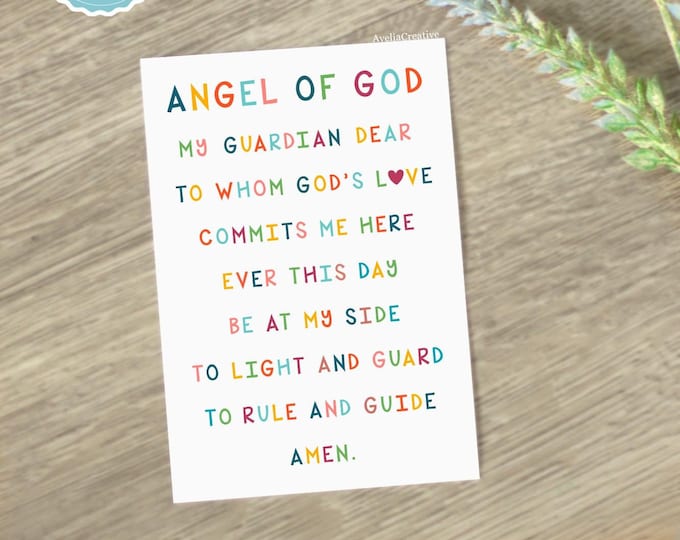 AveliaCreative
ANGEL OF GOD
MY GUARDIAN DEAR
TO WHOM GOD'S L♥VE
COMMITS ME HERE
EVER THIS DAY
BE AT MY SIDE
TO LIGHT AND GUARD
TO RULE AND GUIDE
AMEN.